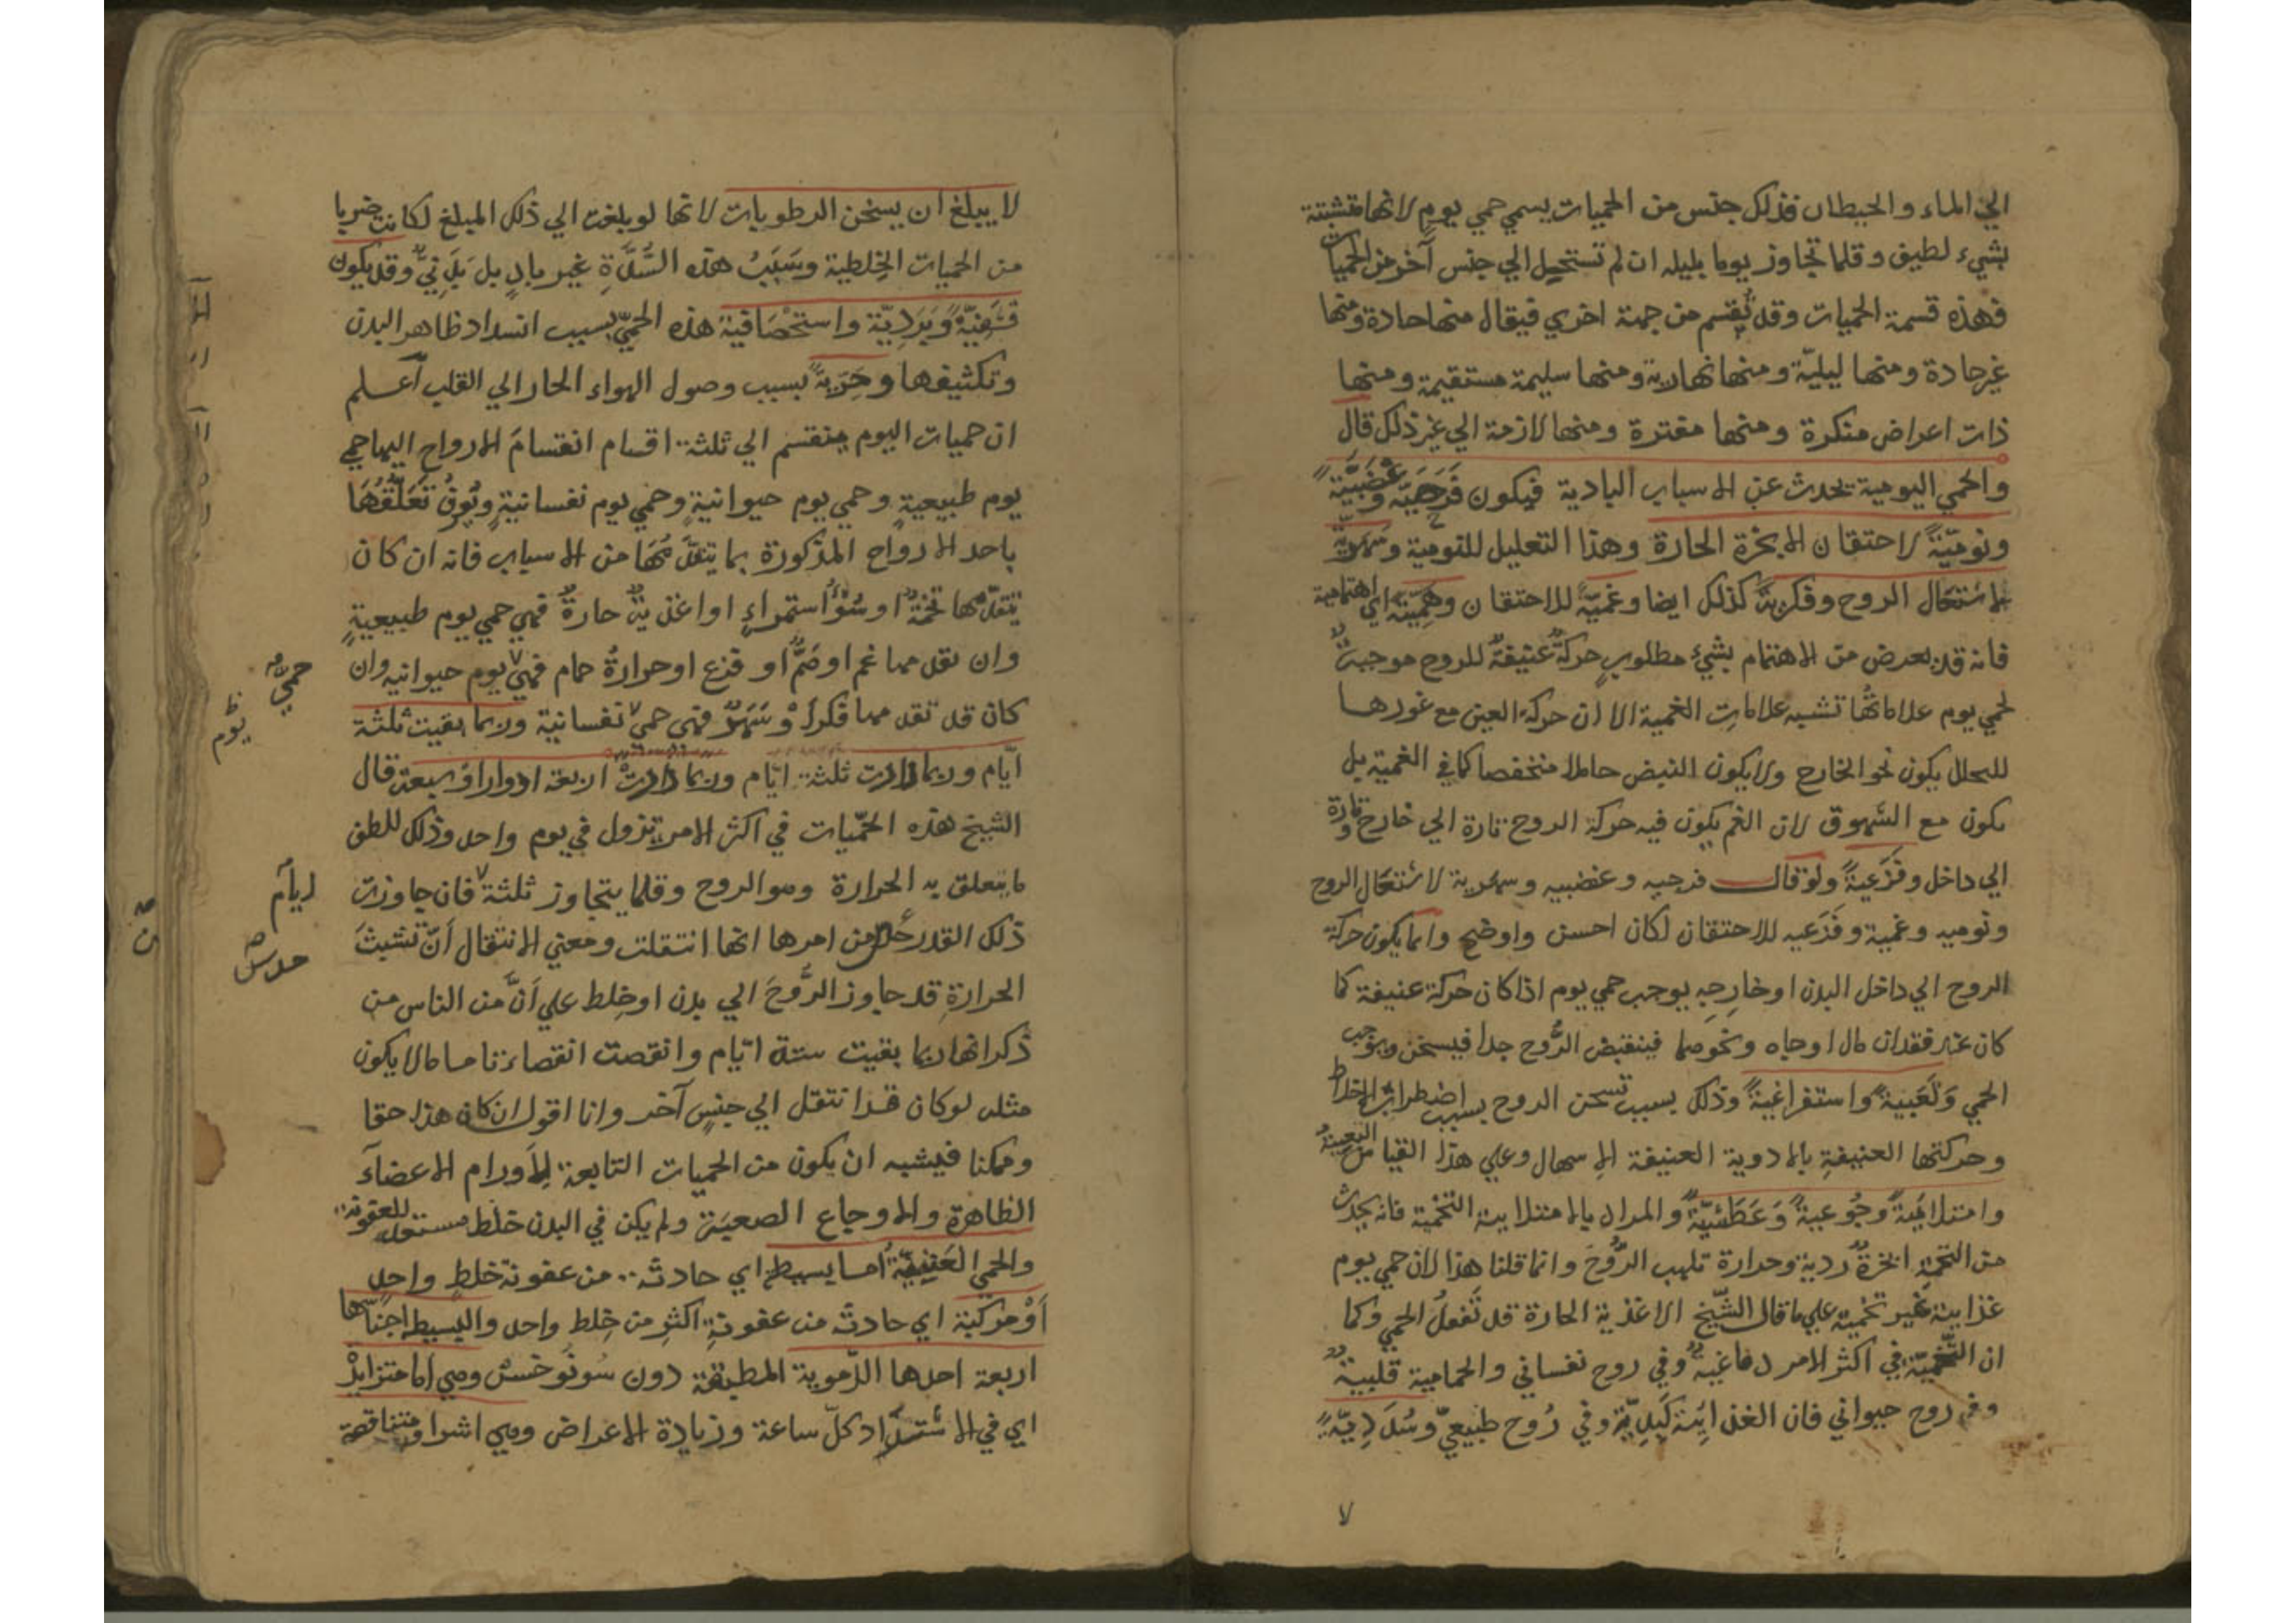 الي الماء والحيطان فذلك جنس من الحميات يسمي حمي يوم لانها متشبثة
بشيء لطيف وقلما تجاوز يوما بليله ان لم تستحيل الي جنس آخر من الحميات
فهذه قسمة الحميات وقد يُقسم من جهة اخري فيقال منها حادة ومنها
غير حادة ومنها ليليّة ومنها نهارية ومنها سليمة مستقيمة ومنها
ذات اعراض منكرة ومنها مفترة ومنها لازمة الي غير ذلك قال
والحمي اليومية تحدث عن الاسباب البادية فيكون فَرَحيّة وغَضَبيَّةً
ونوميّةً لاحتقان الابخرة الحارة وهذا التعليل للنومية وسَهَريّة
لاشتعال الروح وفكريةً كذلك ايضا وغميّةً للاحتقان وهميّةً اي اهتمامية
فانه قد يعرض من الاهتمام بشيء مطلوبٍ حركةٌ عنيفةٌ للروح موجبةٌ
لحمي يوم علاماتُها تشبه علامات الغمية الا ان حركة العين مع غورها
للتحلل يكون نحو الخارج ولا يكون النبض خاملا منخفضا كما في الغمية بل
يكون مع الشهوق لان الغم يكون فيه حركة الروح تارة الي خارج وتارة
الي داخل وفَزَعيةً ولو قال فرحيه وغضبيه وسهرية لاشتعال الروح
ونوميه وغمية وفَزَعيه للاحتقان لكان احسن واوضح وانما يكون حركة
الروح الي داخل البدن او خارجه يوجب حمي يوم اذا كان حركة عنيفة كما
كان عند فقدان مال او جاه ونحوهما فينقبض الرُّوح جدا فيسخن ويوجب
الحمي وَتَعَبيةً واستفراغيةً وذلك بسبب تسخن الروح بسبب اضطراب الاخلاط
وحركتها العنيفةِ بالادوية العنيفة الاسهال وعلي هذا القياس التعبيةُ
وامتلائيةً وجُوعيةً وَعَطَشيّةً والمراد بالامتلايية التخمية فانه يحدث
من التخمة ابخرةٌ ردية وحرارة تلهب الرُّوحَ وانما قلنا هذا لان حمي يوم
غذايية غير تخمية علي ما قال الشيخ الاغذية الحارة قد تَفعلُ الحمي وكما
ان الشمسيّة في اكثر الامر دماغيةٌ وفي روح نفساني والحمامية قلبيةٌ
وفي روح حيواني فان الغذائية كَبِديّةٌ وفي رُوح طبيعيّ وسُدَديّةً
لا
لا يبلغ ان يسخن الرطوبات لانها لو بلغت الي ذلك المبلغ لكانت ضربا
من الحميات الخِلطية وسَبَبُ هذه السُّدَّةِ غير بادٍ بل بَدَنيٌّ وقد يكون
قَشَفِيّةً وَبَرَدِيّة واستحصافية هذه الحميّ بسبب انسداد ظاهر البدن
وتكثيفها وحَرّيةً بسبب وصول الهواء الحار الي القلب اعلم
ان حميات اليوم ينقسم الي ثلثة اقسام انقسامَ الارواح اليها حمي
يوم طبيعيةٍ وحمي يوم حيوانيةٍ وحمي يوم نفسانيةٍ ويُعرف تَعَلُّقُهَا
باحد الارواح المذكورة بما يتقدَّمُهَا من الاسباب فانه ان كان
يتقدّمها تخمةٌ او سُوءُ استمراءٍ او اغذيةٌ حارةٌ فهي حمي يوم طبيعيةٍ
وان تقدمها غم او هَمٌّ او فزع او حرارةُ حمام فهي يوم حيوانيه وان
حميُّ
كان قد تقدمها فكر او سَهَرٌ فهي حمي نفسانية وربما بقيت ثلثة
يوم
ايّام وربما دارت ثلثة ايّام وربما دارت اربعة ادوار او سبعة قال
الشيخ هذه الحمّيات في اكثر الامر تزول في يوم واحد وذلك للطف
ما يتعلق به الحرارة وهو الروح وقلما يتجاوز ثلثة فان جاوزت
ايام
ذلك القدر من امرها انها انتقلت ومعني الانتقال أنّ تشبثَ
حدس
الحرارةِ قد جاوز الرُّوحَ الي بدن او خِلط علي اَنَّ من الناس من
ذكر انها ربما بقيت ستة ايّام وانقضت انقضاء تاما مالا يكون
مثله لو كان قد انتقل الي جنسٍ آخر وانا اقول ان كان هذا حقا
وممكنا فيشبه ان يكون من الحميات التابعة لِاَورام الاعضآء
الظاهرة والاوجاع الصعبة ولم يكن في البدن خلط مستعد للعفونة
والحمي العَفِنيّةُ اما بسيطة اي حادثة من عفونة خلطٍ واحدٍ
اَوْ مركبة اي حادثة من عفونةِ اكثرِ من خِلط واحد والبسيط اجناسها
اربعة احدها الدّموية المطبقة دون سُونُوخسْ وهي اما متزايدْ
اي في الاشتداد كلّ ساعة وزيادة الاعراض وهي اشرا ومتناقصة